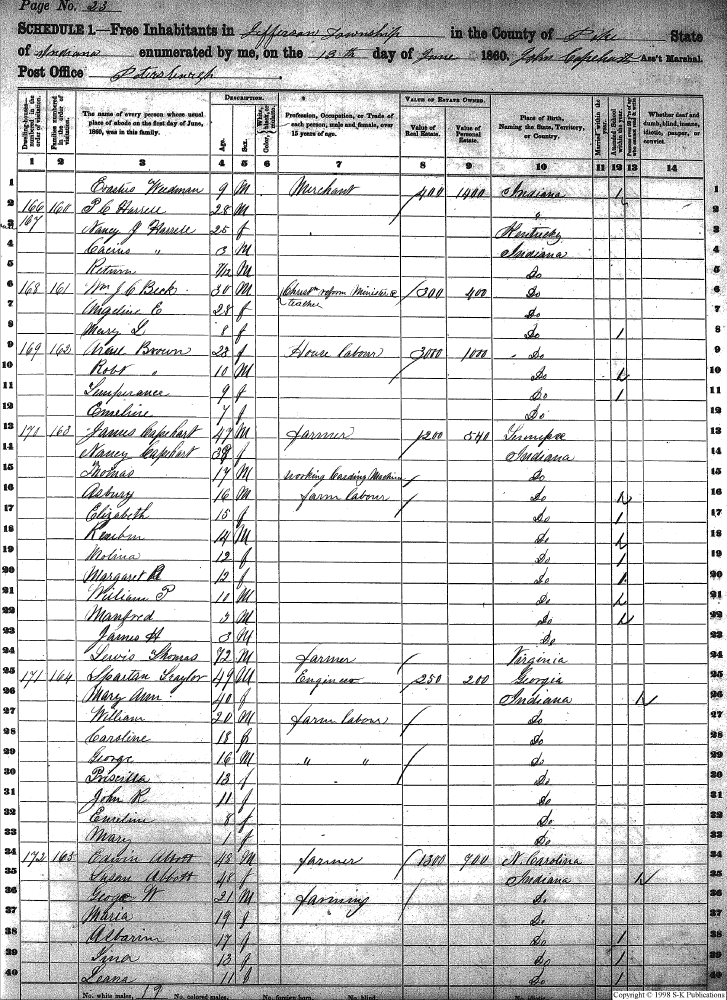 Page No. 23
SCHEDULE 1.—Free Inhabitants in Jefferson Township in the County of Pike State
of Indiana enumerated by me, on the 13th day of June 1860. John Capehart Ass't Marshal.
Post Office Petersburgh
Dwelling-houses—numbered in the order of visitation. Families numbered in the order of visitation. The name of every person whose usual place of abode on the first day of June, 1860, was in this family. DESCRIPTION. Age. Sex. Color, Profession, Occupation, or Trade of each person, male and female, over 15 years of age. VALUE OF ESTATE OWNED. Value of Real Estate. Value of Personal Estate. Place of Birth, Naming the State, Territory, or Country. Married within the year. Attended School within the year. Whether deaf and dumb, blind, insane, idiotic, pauper, or convict.
1 2 3 4 5 6 7 8 9 10 11 12 13 14
1 Erastus Weedman 9 M Merchant 400 1400 Indiana 1 1
2 166 160 P C Harrell 28 M " 2
3 167 Nancy J Harrell 25 f Kentucky 3
4 3 M Indiana 4
5 Return 7/12 M Do 5
6 168 161 Wm J C Beck 30 M Christn reform Minister & teacher 300 400 Do 6
7 Angeline E 28 f Do 7
8 Mary L 8 f Do 1 8
9 169 162 Brown 28 f House labour 3000 1000 Do 9
10 Robt " 10 M Do 10
11 Temperance 9 f Do 1 11
12 Emeline 7 f Do 12
13 170 163 James Capehart 47 M farmer 1200 540 13
14 Nancy Capehart 39 f Indiana 14
15 Thomas 17 M working Carding Machine Do 15
16 Asbury 16 M farm labour Do 16
17 Elizabeth 15 f Do 1 17
18 Reubin 14 M Do 18
19 Molina 12 f Do 1 19
20 Margaret 12 f Do 1 20
21 William P 10 M Do 21
22 Manford 5 M Do 22
23 James H 3 M Do 23
24 Lewis Thomas 72 M farmer Virginia 24
25 171 164 Spartan Traylor 49 M Engineer 250 200 Georgia 25
26 Mary Ann 40 f Indiana 26
27 William 20 M farm labour Do 27
28 Caroline 18 f Do 28
29 George 16 M " " Do 29
30 Priscilla 13 f Do 30
31 John R 11 Do 31
32 Emeline 8 f Do 32
33 Mary 1 f Do 33
34 172 165 Edwin Abbott 48 M farmer 1300 700 N. Carolina 34
35 Susan Abbott 48 f Indiana 35
36 George W 21 M farming Do 36
37 Maria 19 f Do 37
38 17 f Do 1 38
39 13 f Do 1 39
40 11 f Do 1 40
No. white males, 19 No. colored males, No. foreign born, No. blind,
Copyright © 1998 S-K Publications